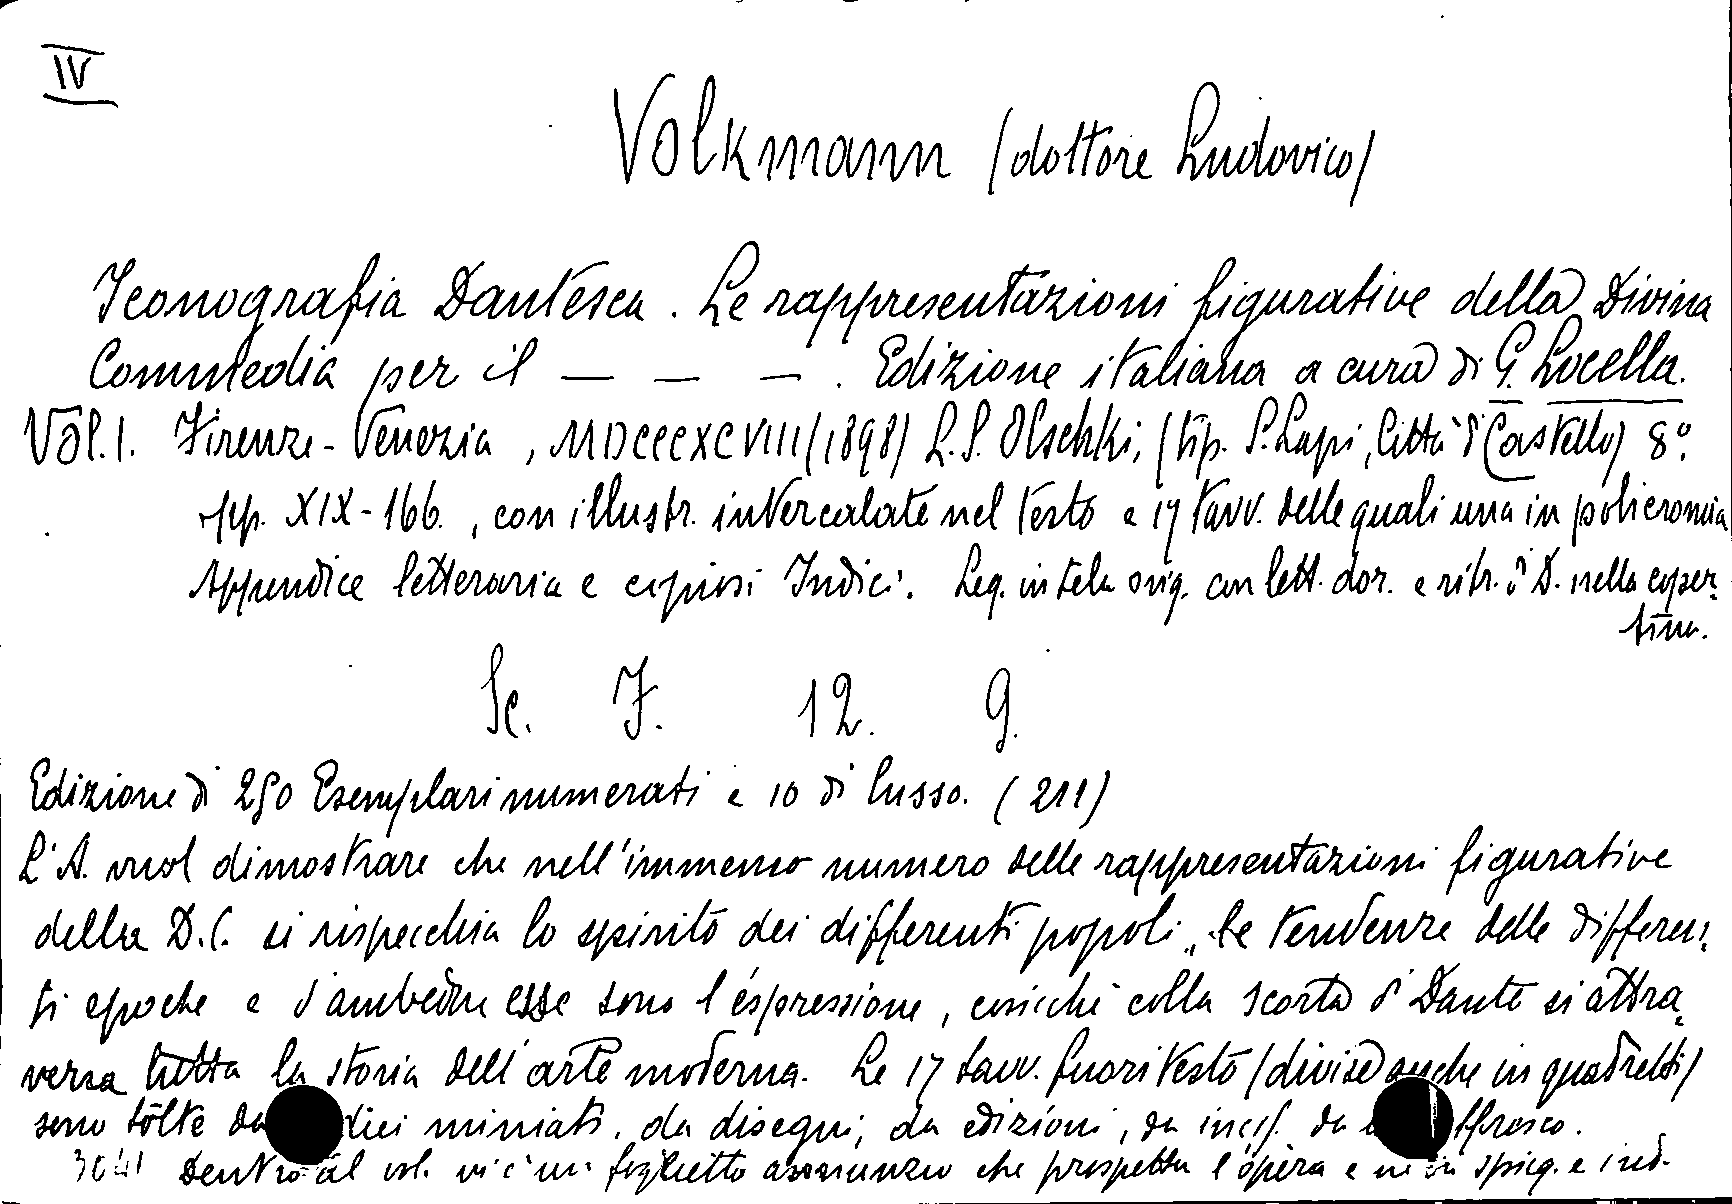 IV
Volkmann (dottore Ludovico)
Iconografia Dantesca. Le rappresentazioni figurative della Divina
Commedia per il — — —. Edizione italiana a cura di G. Locella.
Vol. I. Firenze-Venezia, MDCCCXCVIII (1898) L. S. Olschki, (tip. S. Lapi, Città di Castello) 8°.
pp. XIX-166., con illustr. intercalate nel testo e 17 tavv. delle quali una in policromia
Appendice letteraria e copiosi Indici. Leg. in tela orig. con lett. dor. e ritr. di D. nella coper-
tina.
Sc. F. 12. 9.
Edizione di 250 Esemplari numerati e 10 di lusso. (211)
L'A. vuol dimostrare che nell'immenso numero delle rappresentazioni figurative
della D.C. si rispecchia lo spirito dei differenti popoli, le tendenze delle differen-
ti epoche e d'ambedue esse sono l'espressione, cosicchè colla scorta di Dante si attra-
versa tutta la storia dell'arte moderna. Le 17 tavv. fuori testo (divise anche in quadretti)
sono tolte da dici miniati, da disegni, da edizioni, da incis. da ffresco.
3041 Dentro al vol. vi è un foglietto annunzio che prospetta l'opera e ne dà spieg. e ind.